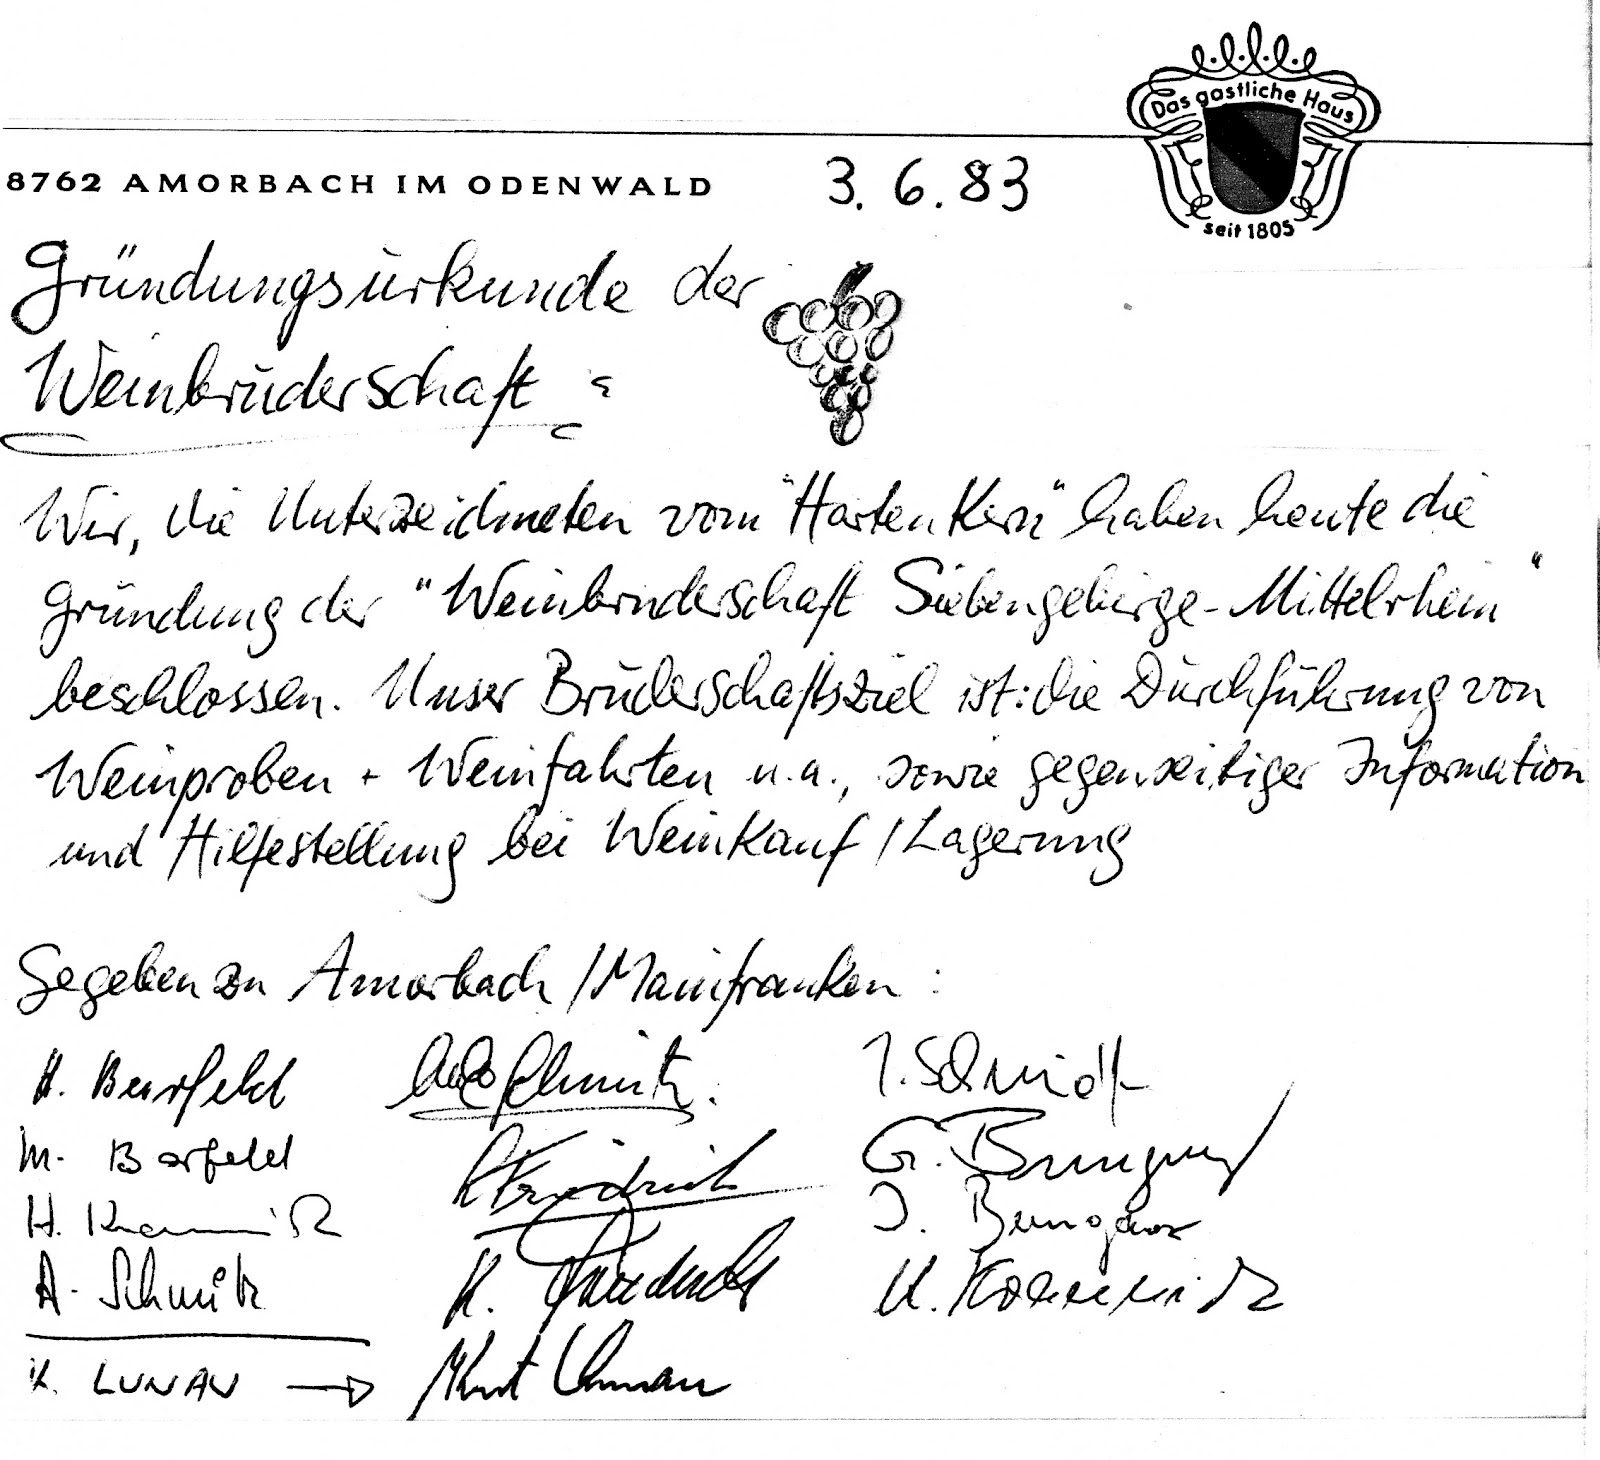 Das gastliche Haus
seit 1805
8762 AMORBACH IM ODENWALD 3.6.83
Gründungsurkunde der
Weinbruderschaft :
Wir, die Unterzeichneten vom "Harten Kern" haben heute die
Gründung der "Weinbruderschaft Siebengebirge-Mittelrhein"
beschlossen. Unser Bruderschaftsziel ist: die Durchführung von
Weinproben + Weinfahrten u.a., sowie gegenseitiger Information
und Hilfestellung bei Weinkauf/Lagerung
Gegeben zu Amorbach/Mainfranken:
H. Barfeld Schmitz. I. Schmidt
M. Barfeld Friedrich G. Bungarz
H. Kramnitz I. Bungarz
A. Schmitz K. Friedrich
K. LUNAU → Kurt Lunau